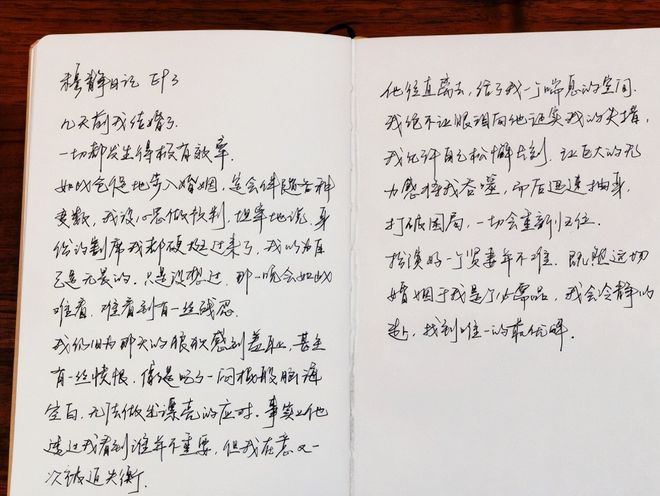 穆静日记 EP3
几天前我结婚了.
一切都发生得极有效率.
如此仓促地步入婚姻, 是会伴随各种
变数, 我没心思做预判, 坦率地说, 身
份的割席我都硬挺过来了, 我以为自
己是无畏的. 只是没想过, 那一晚会如此
难看, 难看到有一丝残忍.
我仍旧为那天的服软感到羞耻, 甚至
有一丝愤恨, 像是吃了一闷棍般脑海
空白, 无法做出漂亮的应对. 事实上他
透过我看到谁并不重要, 但我在意又一
次被迫失衡.
他径直离去, 给了我一个喘息的空间.
我绝不让眼泪向他证实我的失措,
我允许自己松懈片刻, 让巨大的无
力感将我吞噬, 而后迅速抽身,
打破困局, 一切会重新归位.
扮演好一个贤妻并不难. 既然这场
婚姻于我是个必需品, 我会冷静的
, 找到唯一的最优解.